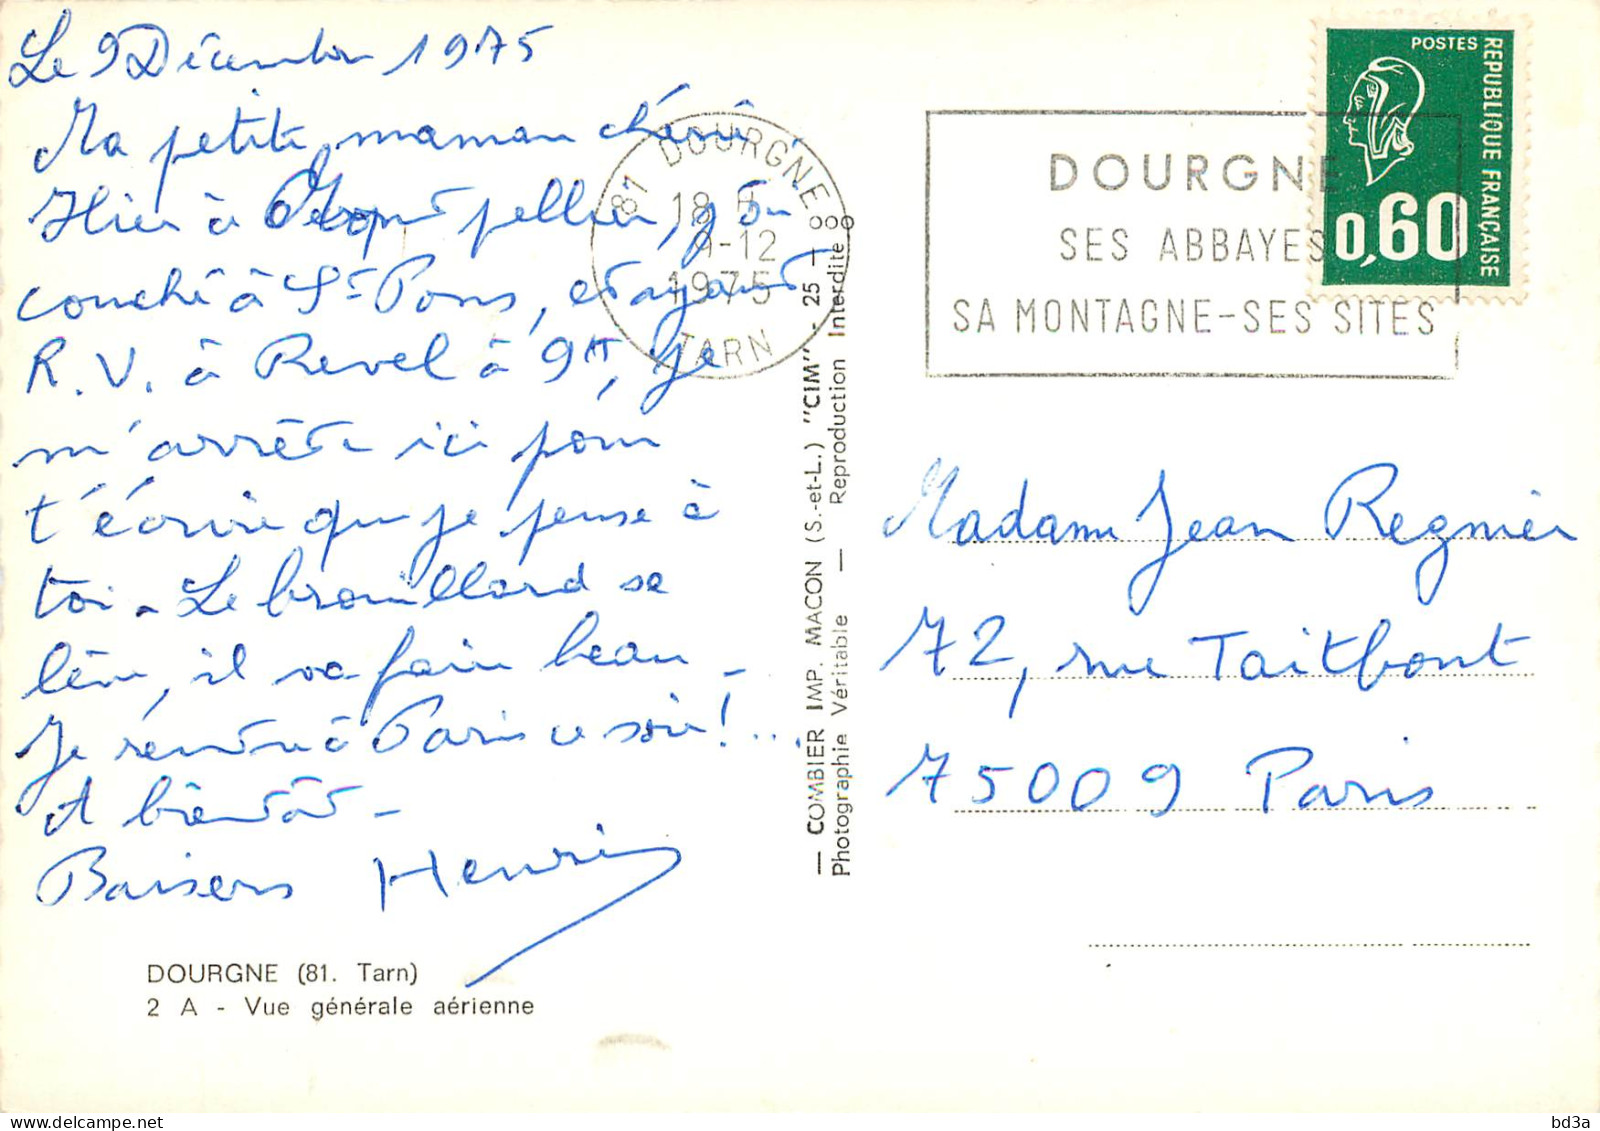 Le 9 Décembre 1975
Ma petite maman chérie,
Hier à Montpellier, j'ai
couché à St Pons, et ayant
R.V. à Revel à 9H, je
m'arrête ici pour
t'écrire que je pense à
toi - Le brouillard se
lève, il va faire beau -
Je rentre à Paris ce soir !...
A bientôt -
Baisers Henri
DOURGNE (81. Tarn)
2 A - Vue générale aérienne
81 DOURGNE
18 H
9-12
1975
TARN
— COMBIER IMP. MACON (S.-et-L.) "CIM" - 25 —
Photographie Véritable — Reproduction Interdite
DOURGNE
SES ABBAYES
SA MONTAGNE-SES SITES
POSTES
REPUBLIQUE FRANÇAISE
0,60
Madame Jean Regnier
72, rue Taitbout
75009 Paris
bd3a